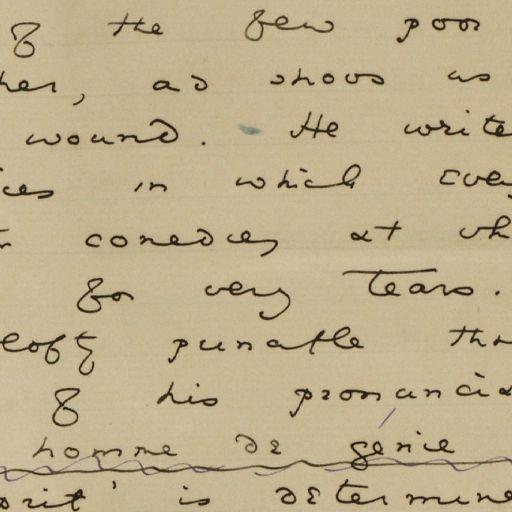 of the few poor
her, and shows us
wound. He write
ces in which ever
comedies at wh
for very tears.
lofty pinnacle tha
of his pronuncia
homme de génie
sprit' is determine